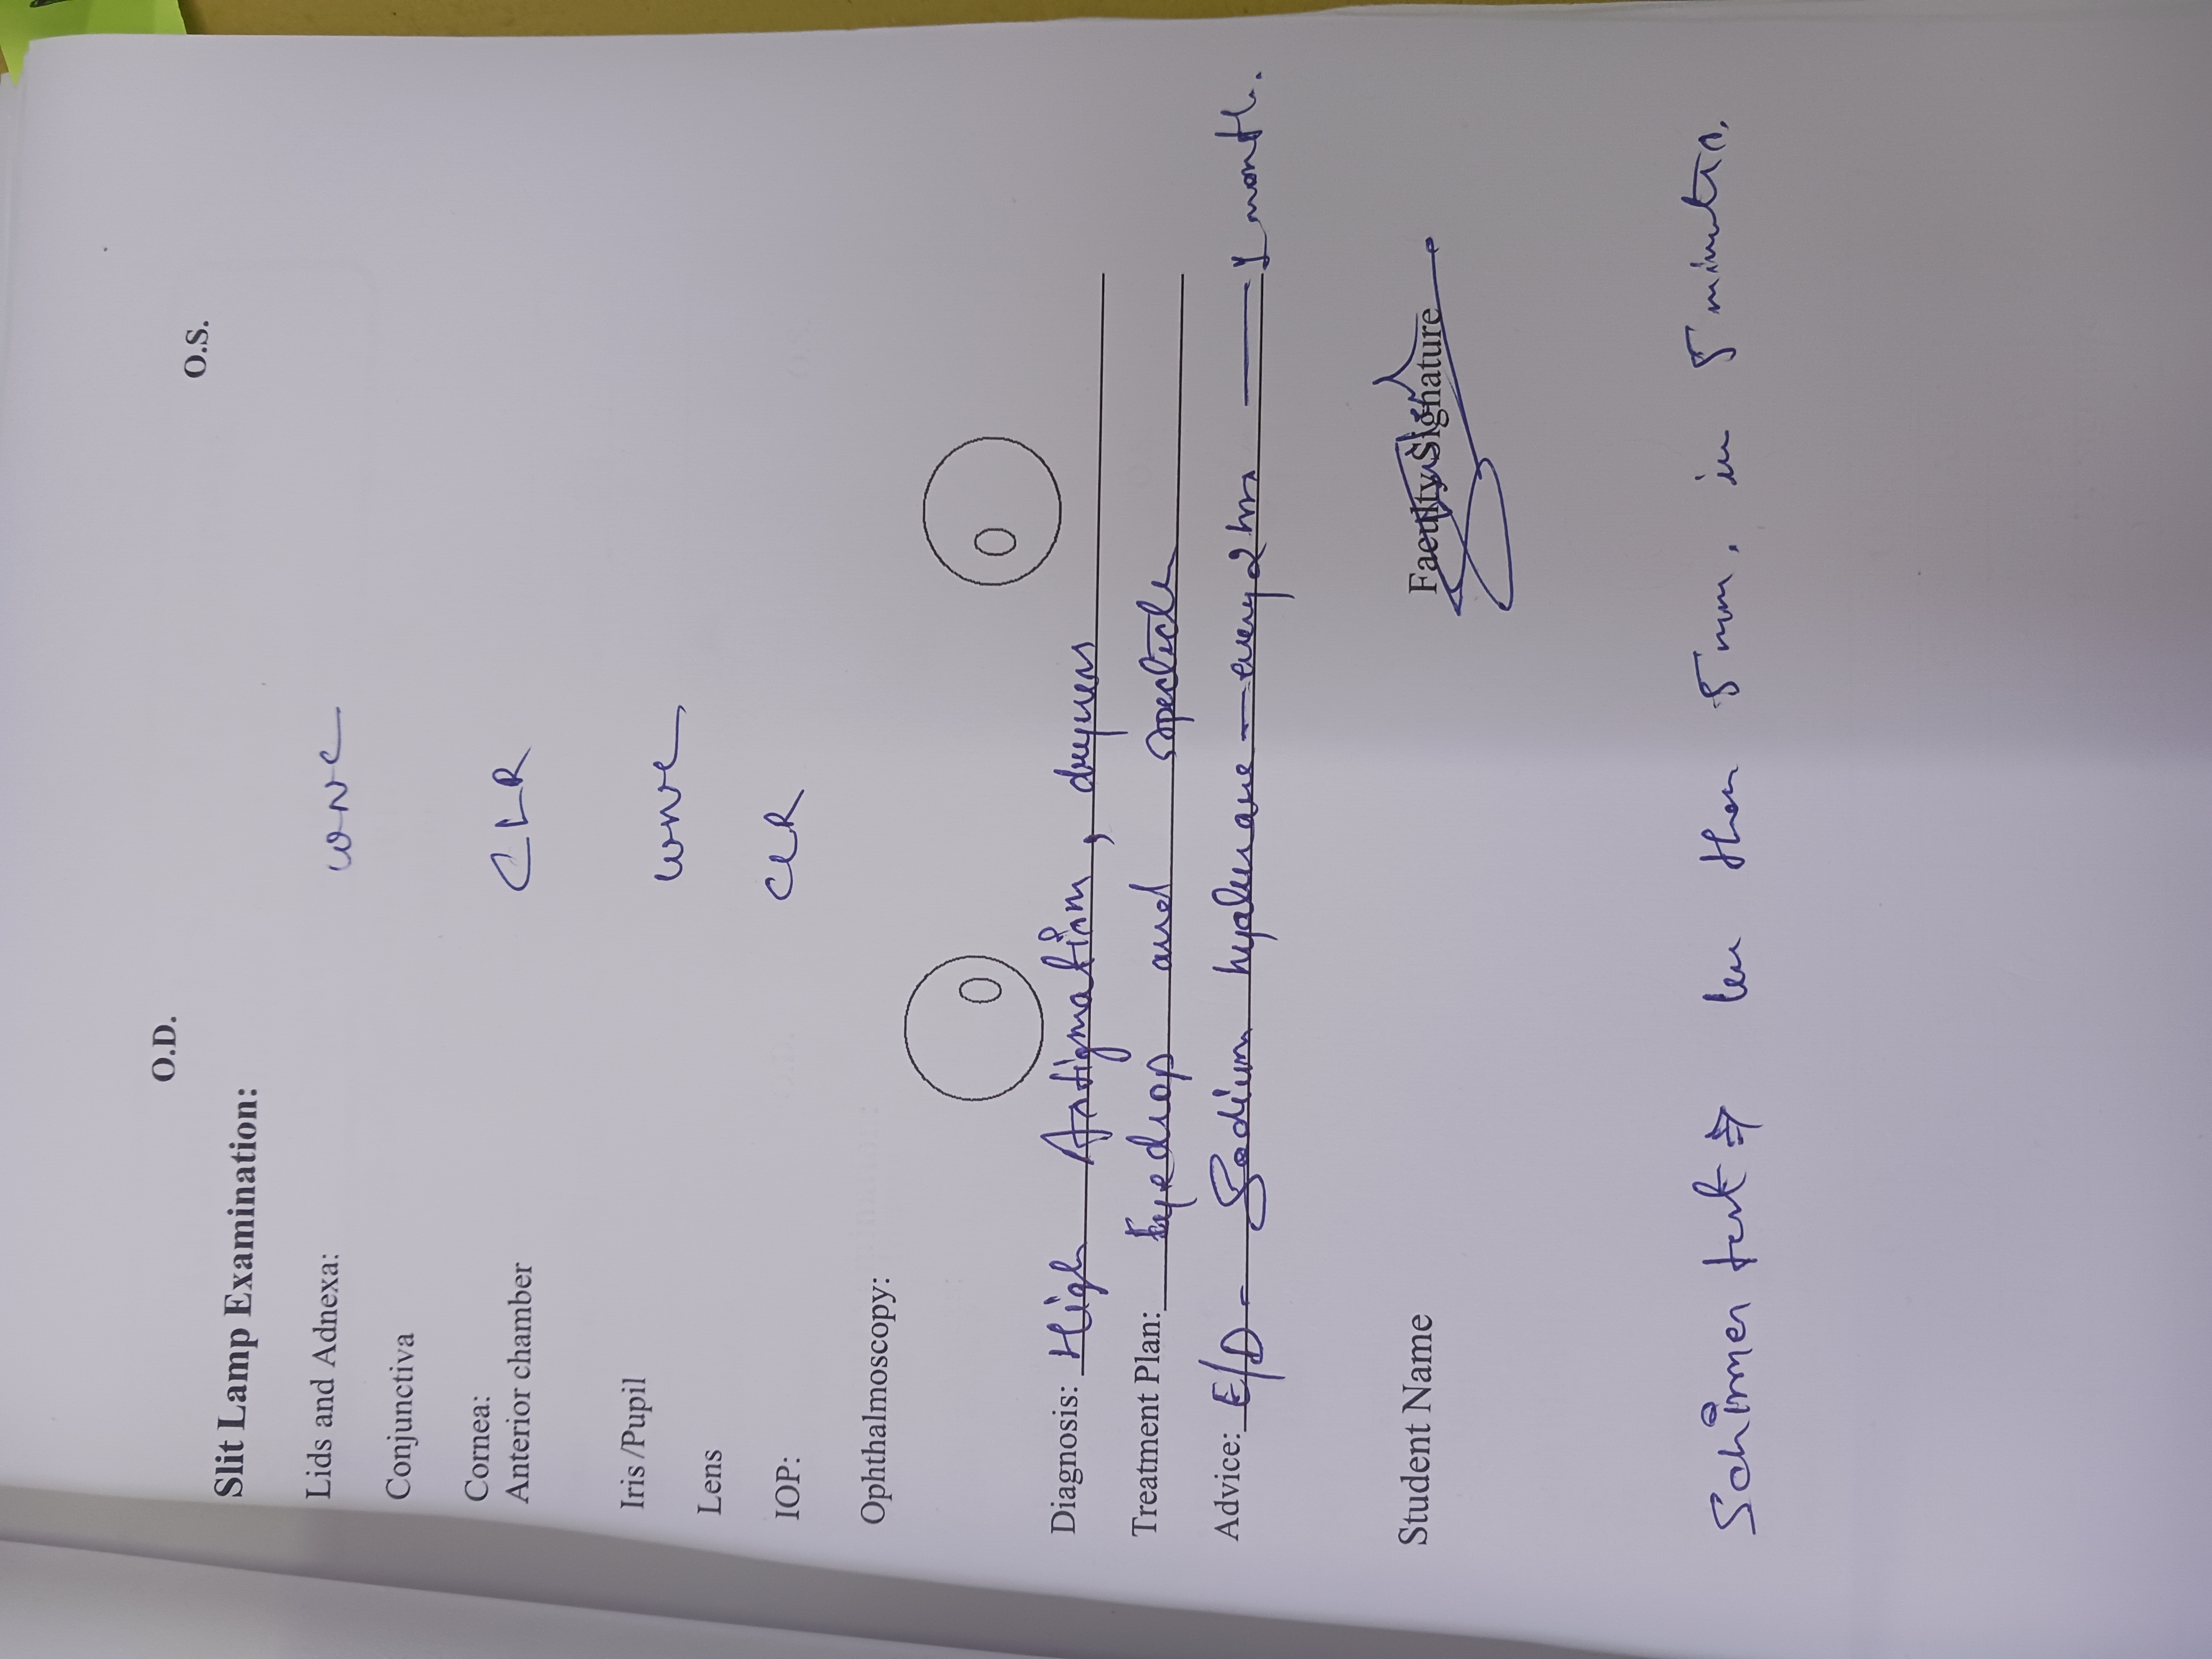 O.D. O.S.
Slit Lamp Examination:
Lids and Adnexa: WNL
Conjunctiva
Cornea:
Anterior chamber CLR
Iris /Pupil
WNL
Lens
IOP: CLR
Ophthalmoscopy:
Diagnosis: High Astigmatism, dryness
Treatment Plan: Eyedrop and spectacle
Advice: E/D - Sodium hyalurane — every 2 hrs — 1 month.
Student Name Faculty Signature
Schirmer test ⇒ less than 5 mm. in 5 minutes.